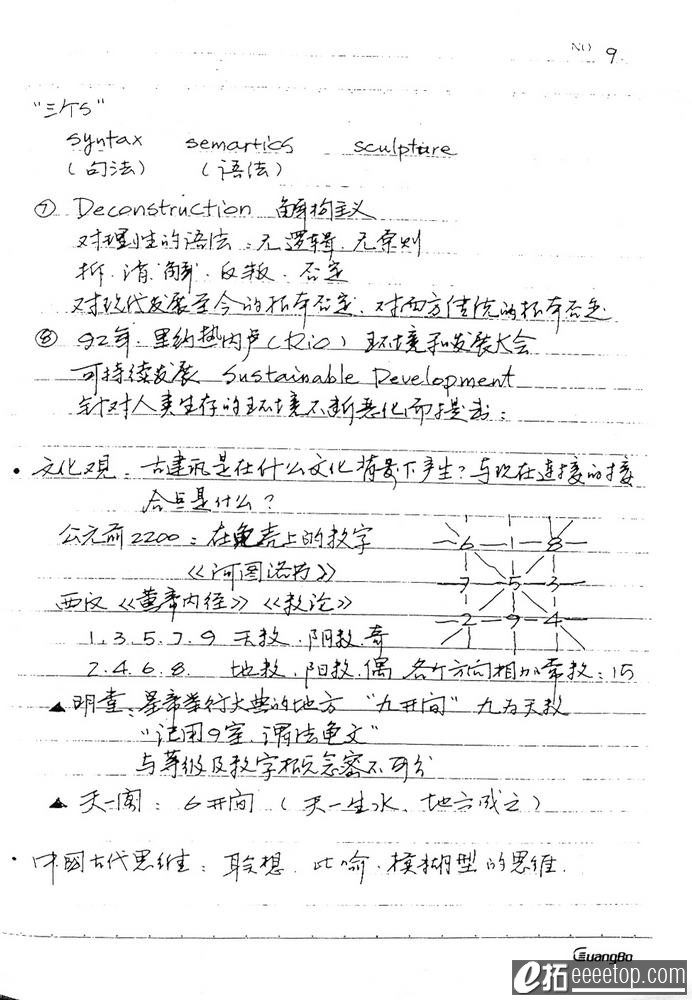 NO 9
"三个S"
syntax semartics sculpture
(句法) (语法)
⑦ Deconstruction 解构主义
对理性的语法:无逻辑.无原则
拆.消.解.反叛.否定
对现代发展至今的根本否定.对西方传统的根本否定
⑧ 92年.里约热内卢(Rio)环境和发展大会
可持续发展 Sustainable Development
针对人类生存的环境不断恶化而提出:
• 文化观.古建筑是在什么文化背景下产生?与现在连接的接
合点是什么?
公元前2200:在龟壳上的数字
《河图洛书》
6 1 8
7 5 3
2 9 4
西汉《黄帝内径》《数论》
1.3.5.7.9 天数.阴数.奇
2.4.6.8. 地数.阳数.偶 各个方向相加常数:15
▲ 明堂:皇帝举行大典的地方 "九开间" 九为天数
"记用9室,谓法龟文"
与等级及数字概念密不可分
▲ 天一阁:6开间(天一生水、地六成之)
• 中国古代思维:联想.比喻.模糊型的思维.
GuangBo
e拓 eeeetop.com